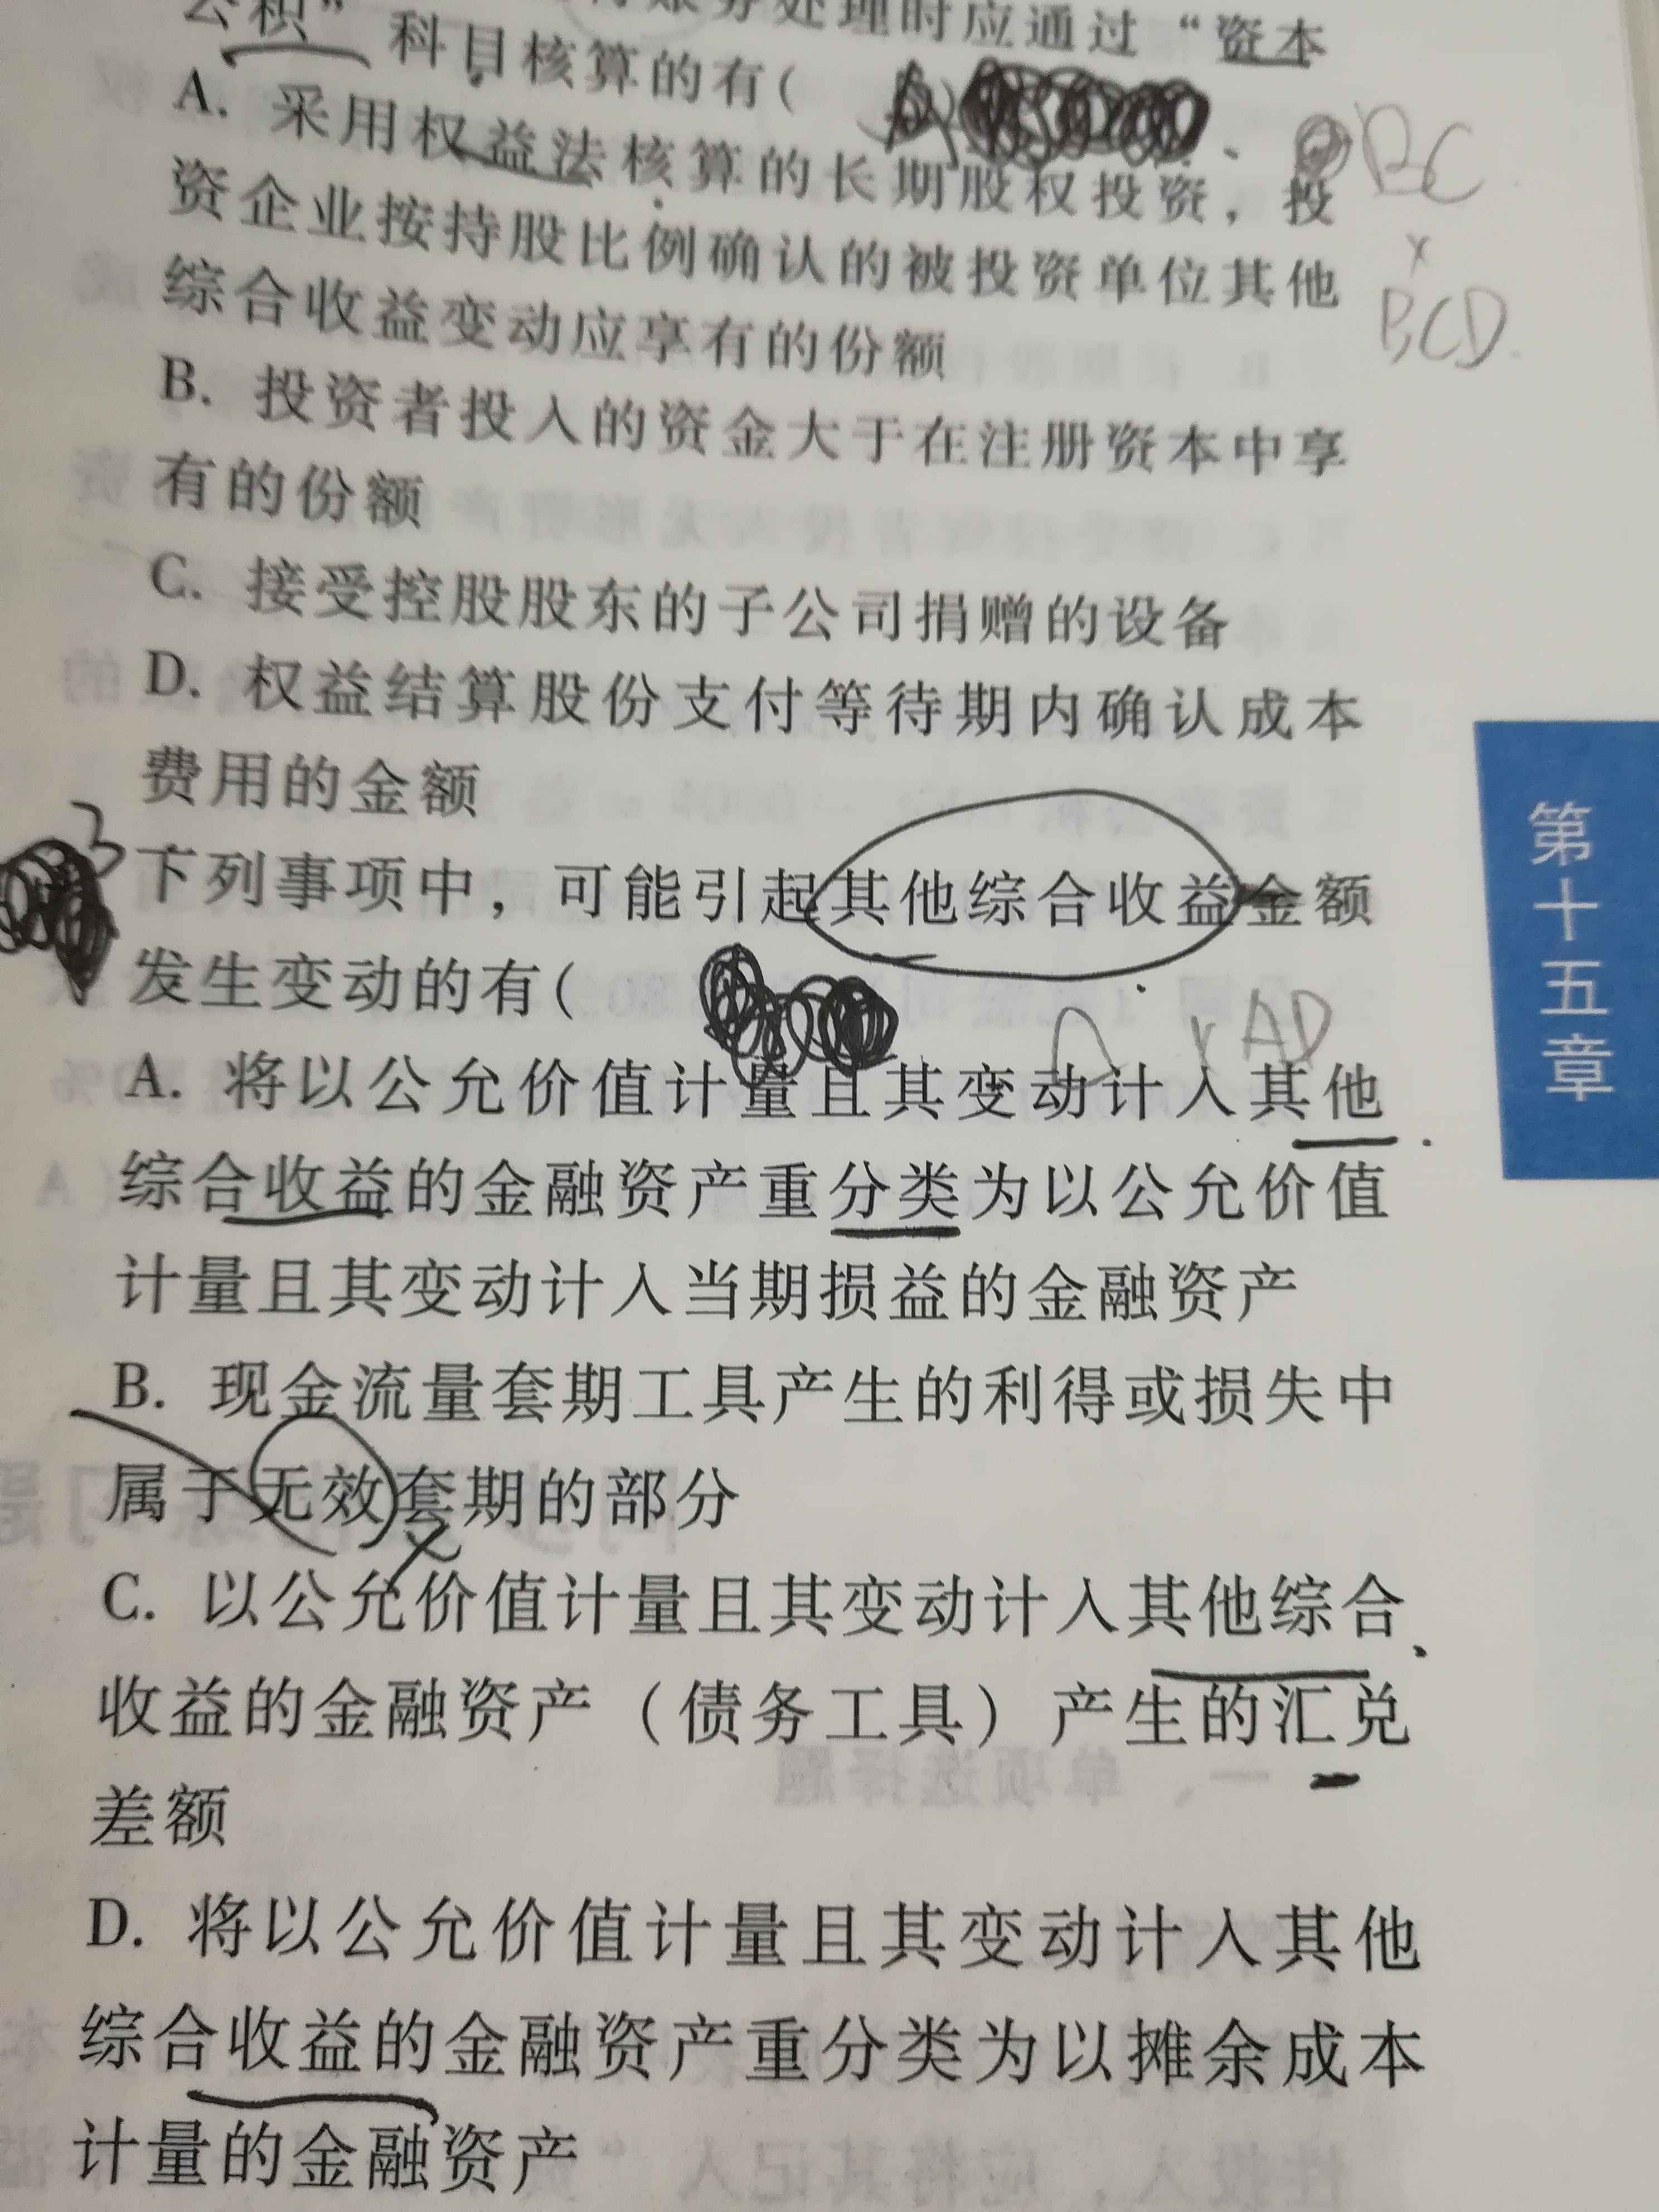 公积”科目核算的有(
账务处理时应通过“资本
BC
×
BCD
A. 采用权益法核算的长期股权投资，投
资企业按持股比例确认的被投资单位其他
综合收益变动应享有的份额
B. 投资者投入的资金大于在注册资本中享
有的份额
C. 接受控股股东的子公司捐赠的设备
D. 权益结算股份支付等待期内确认成本
费用的金额
3
下列事项中，可能引起其他综合收益金额
发生变动的有(
AD
A. 将以公允价值计量且其变动计入其他
综合收益的金融资产重分类为以公允价值
计量且其变动计入当期损益的金融资产
B. 现金流量套期工具产生的利得或损失中
属于无效套期的部分
C. 以公允价值计量且其变动计入其他综合
收益的金融资产（债务工具）产生的汇兑
差额
D. 将以公允价值计量且其变动计入其他
综合收益的金融资产重分类为以摊余成本
计量的金融资产
第十五章